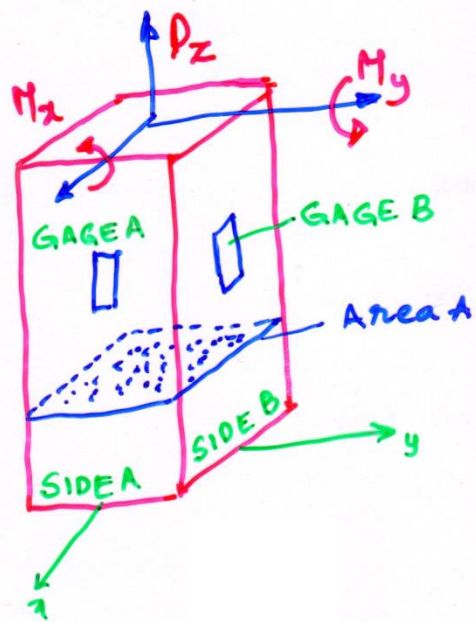 Pz
Mx
My
GAGE A
GAGE B
Area A
SIDE A
SIDE B
y
x